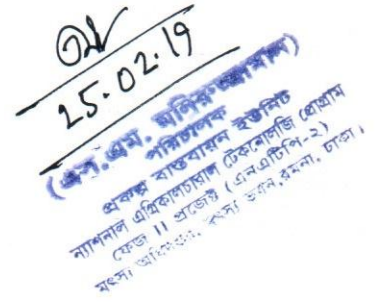 25.02.19
(এস.এম. মনিরুজ্জামান)
পরিচালক
প্রকল্প বাস্তবায়ন ইউনিট
ন্যাশনাল এগ্রিকালচারাল টেকনোলজি প্রোগ্রাম
ফেজ II প্রজেক্ট (এনএটিপি-২)
মৎস্য অধিদপ্তর, মৎস্য ভবন, রমনা, ঢাকা।